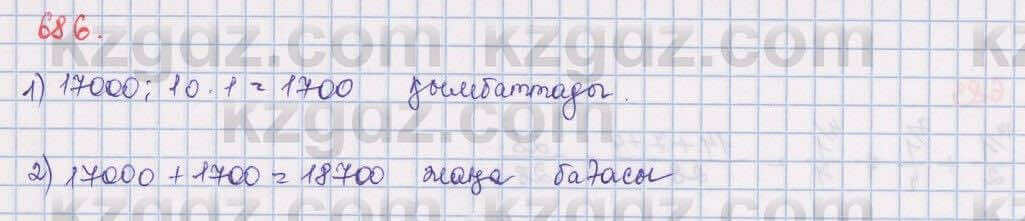 686.
kzgdz.com kzgdz.com kzgdz.com
1) 17000 : 10 · 1 = 1700 қымбаттады.
kzgdz.com kzgdz.com
2) 17000 + 1700 = 18700 жаңа бағасы